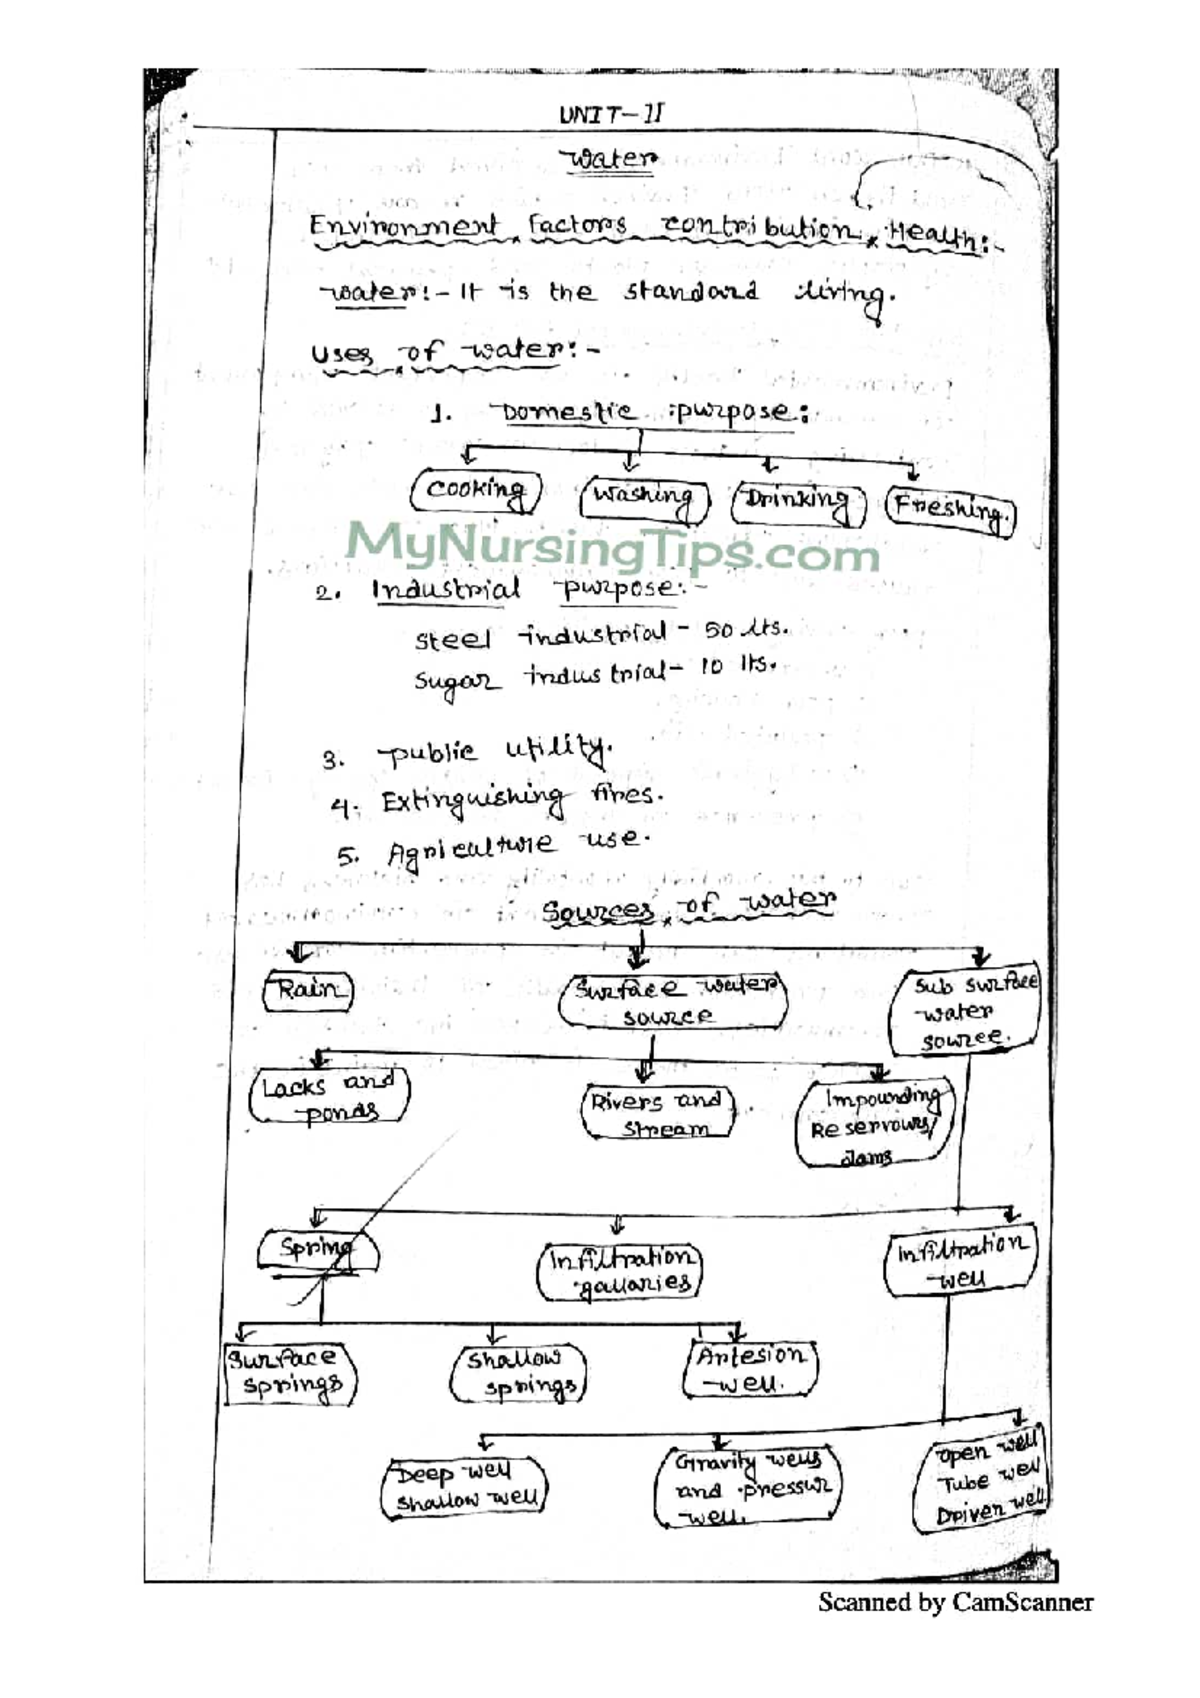 UNIT-II
Water
Environment Factors contribution Health:-
Water:- It is the standard living.
Uses of water:-
1. Domestic purpose:
Cooking
Washing
Drinking
Freshing.
MyNursingTips.com
2. Industrial purpose:-
Steel industrial - 50 lts.
Sugar industrial - 10 lts.
3. public utility.
4. Extinguishing fires.
5. Agriculture use.
Sources of water
Rain
Surface water
source
Sub surface
water
source.
Lacks and
ponds
Rivers and
stream
Impounding
Reservours/
dams
Spring
Infiltration
gallaries
Infiltration
well
Surface
springs
Shallow
springs
Artesion
well.
Deep well
shallow well
Gravity wells
and pressur
well.
open well
Tube well
Driven well
Scanned by CamScanner